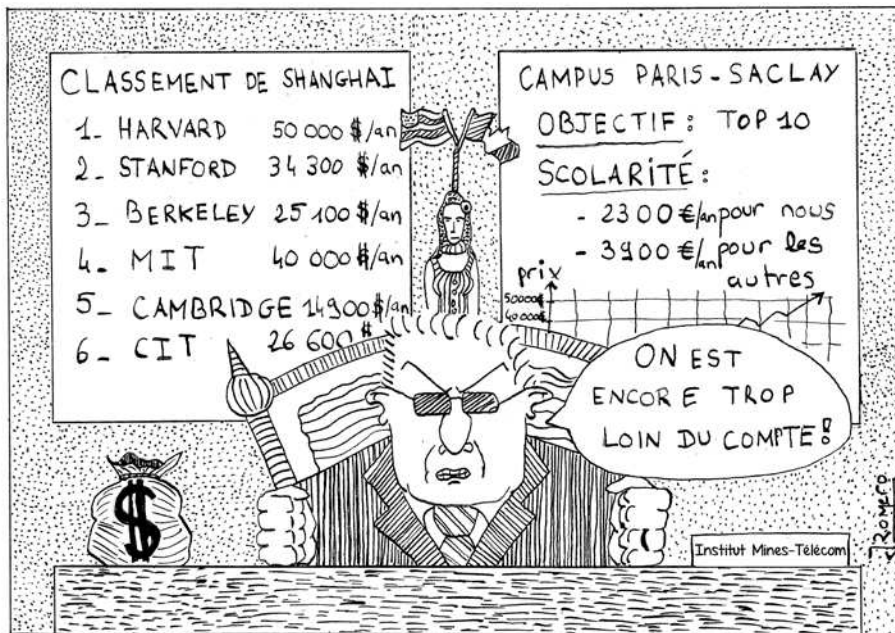 CLASSEMENT DE SHANGHAI
1_ HARVARD 50 000 $/an
2_ STANFORD 34 300 $/an
3_ BERKELEY 25 100 $/an
4_ MIT 40 000 $/an
5_ CAMBRIDGE 14900 $/an
6_ CIT 26 600 $
CAMPUS PARIS-SACLAY
OBJECTIF : TOP 10
SCOLARITÉ :
- 2300 €/an pour nous
- 3900 €/an pour les
autres
prix
50000€
40 000€
ON EST
ENCORE TROP
LOIN DU COMPTE !
$
Institut Mines-Télécom